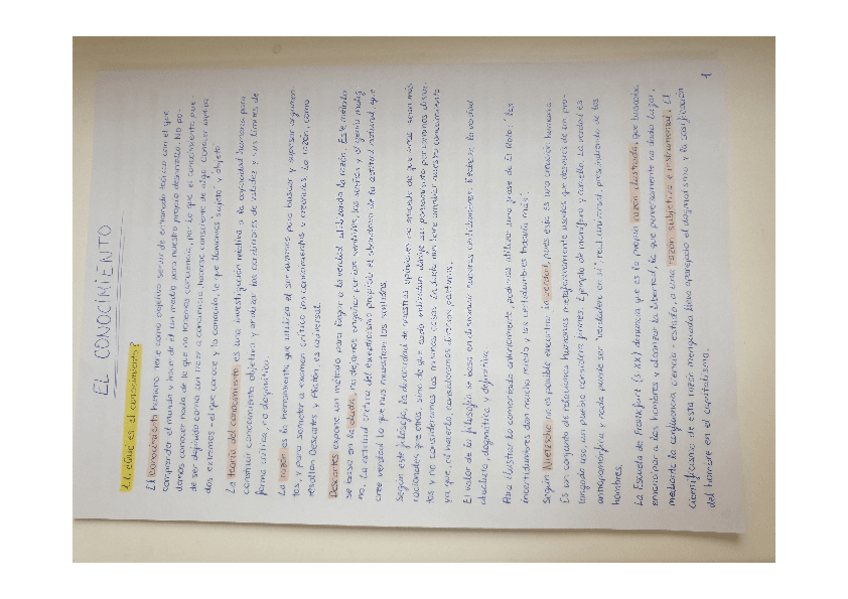 EL CONOCIMIENTO
1.1. ¿Qué es el conocimiento?
El conocimiento humano tiene como objetivo servir de entramado teórico con el que
comprender el mundo y hacer de él un medio para nuestro propio desarrollo. No po-
demos conocer nada de lo que no tenemos conciencia, por lo que el conocimiento pue-
de ser definido como un traer a conciencia, hacerse consciente de algo. Conocer implica
dos extremos - el que conoce y lo conocido, lo que llamamos sujeto y objeto.
La teoría del conocimiento es una investigación relativa a la capacidad humana para
construir conocimiento objetivo y analizar las condiciones de validez y sus límites de
forma crítica, no dogmática.
La razón es la herramienta que utiliza el ser humano para buscar y sopesar argumen-
tos, y para someter a examen crítico los conocimientos y creencias. La razón, como
resaltan Descartes y Platón, es universal.
Descartes expone un método para llegar a la verdad utilizando la razón. Este método
se basa en la duda, no dejarnos engañar por los sentidos, los sueños y el genio malig
no. La actitud crítica del escepticismo propició el abandono de la actitud natural, que
cree verdad lo que nos muestran los sentidos.
Según este filósofo, la diversidad de nuestras opiniones no procede de que unos sean más
racionales que otros, sino de que cada individuo dirige su pensamiento por caminos distin-
tos y no consideramos las mismas cosas. La duda nos hace ampliar nuestro conocimiento
ya que, al hacerlo, consideramos diversas posturas.
El valor de la filosofía se basa en disminuir nuestras certidumbres. Establece la verdad
absoluta, dogmática y objetiva.
Para ilustrar lo comentado anteriormente, podemos utilizar una frase de El Roto: "las
incertidumbres dan mucho miedo y las certidumbres todavía más".
Según Nietzsche no es posible encontrar la verdad, pues esta es una creación humana.
Es un conjunto de relaciones humanas metafóricamente usadas que después de un pro-
longado uso, un pueblo considera firmes. Ejemplo de mamífero y camello. La verdad es
antropomórfica y nada puede ser "verdadero en sí", real, universal, prescindiendo de los
hombres.
La Escuela de Frankfurt (s. XX) denuncia que es la propia razón ilustrada, que buscaba
emancipar a los hombres y alcanzar la libertad, la que perversamente ha dado lugar,
mediante la confluencia ciencia - estado, a una razón subjetiva e instrumental. El
cientificismo de esta razón menguada lleva aparejado el dogmatismo y la cosificación
del hombre en el capitalismo.
1